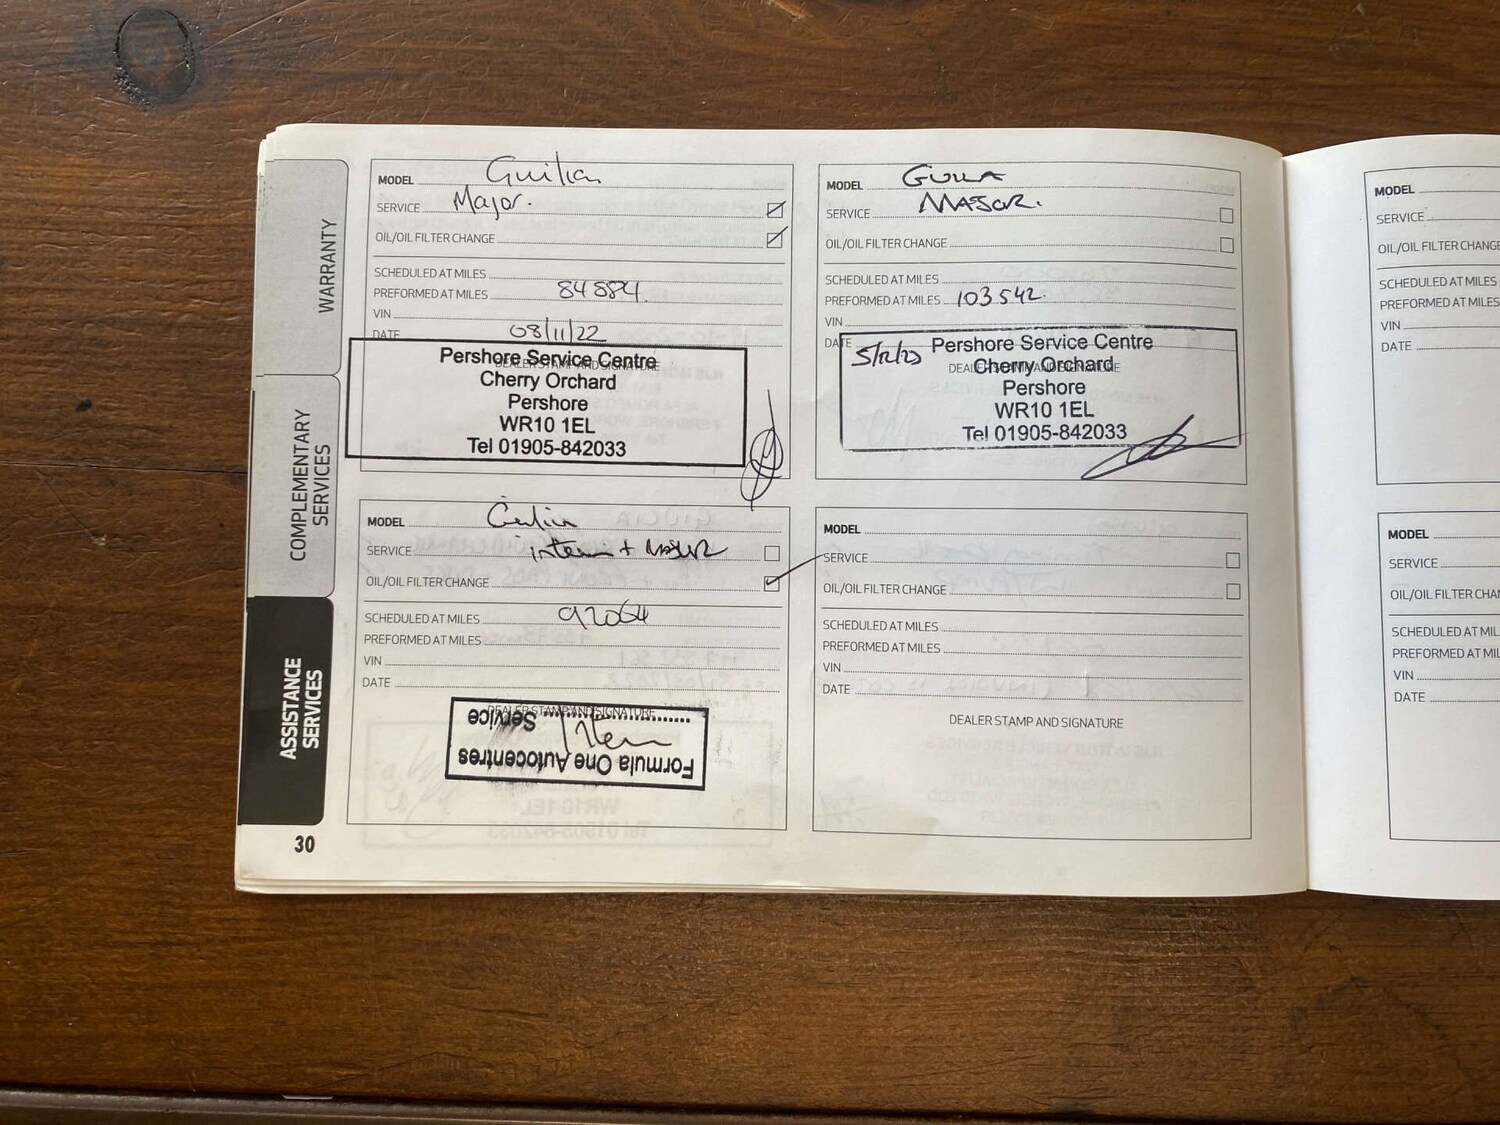 WARRANTY
COMPLEMENTARY
SERVICES
ASSISTANCE
SERVICES
30
MODEL Guilia
SERVICE Major.
OIL/OIL FILTER CHANGE
SCHEDULED AT MILES
PREFORMED AT MILES 84884.
VIN
DATE 08/11/22
DEALER STAMP AND SIGNATURE
Pershore Service Centre
Cherry Orchard
Pershore
WR10 1EL
Tel 01905-842033
MODEL
SERVICE MAJOR.
OIL/OIL FILTER CHANGE
SCHEDULED AT MILES
PREFORMED AT MILES 103542.
VIN
DATE 5/12/23
DEALER STAMP AND SIGNATURE
Pershore Service Centre
Cherry Orchard
Pershore
WR10 1EL
Tel 01905-842033
MODEL
SERVICE interim + MAJOR
OIL/OIL FILTER CHANGE
SCHEDULED AT MILES 92064
PREFORMED AT MILES
VIN
DATE
DEALER STAMP AND SIGNATURE
Formula One Autocentres
Service
MODEL
SERVICE
OIL/OIL FILTER CHANGE
SCHEDULED AT MILES
PREFORMED AT MILES
VIN
DATE
DEALER STAMP AND SIGNATURE
MODEL
SERVICE
OIL/OIL FILTER CHANGE
SCHEDULED AT MILES
PREFORMED AT MILES
VIN
DATE
MODEL
SERVICE
OIL/OIL FILTER CHA
SCHEDULED AT MIL
PREFORMED AT MIL
VIN
DATE